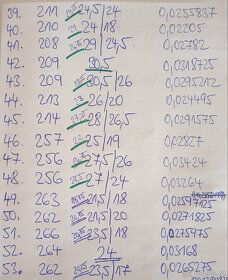 39. 211 24,5/24 0,0255837
40. 210 24/18 0,02205
41. 208 29/24,5 0,02782
42. 209 30,5 0,0318725
43. 209 30,5/26 0,0295212
44. 213 26/20 0,024495
45. 214 28/26,5 0,0291575
46. 257 25/19 0,02827
47. 256 27,5/26 0,03424
48. 256 27/24 0,03264
49. 263 21,5/18
50. 262 21,5/20 0,0271825
51. 266 23,5/18 0,0275975
52. 264 24 0,03168
53. 262 23,5/17 0,0265275